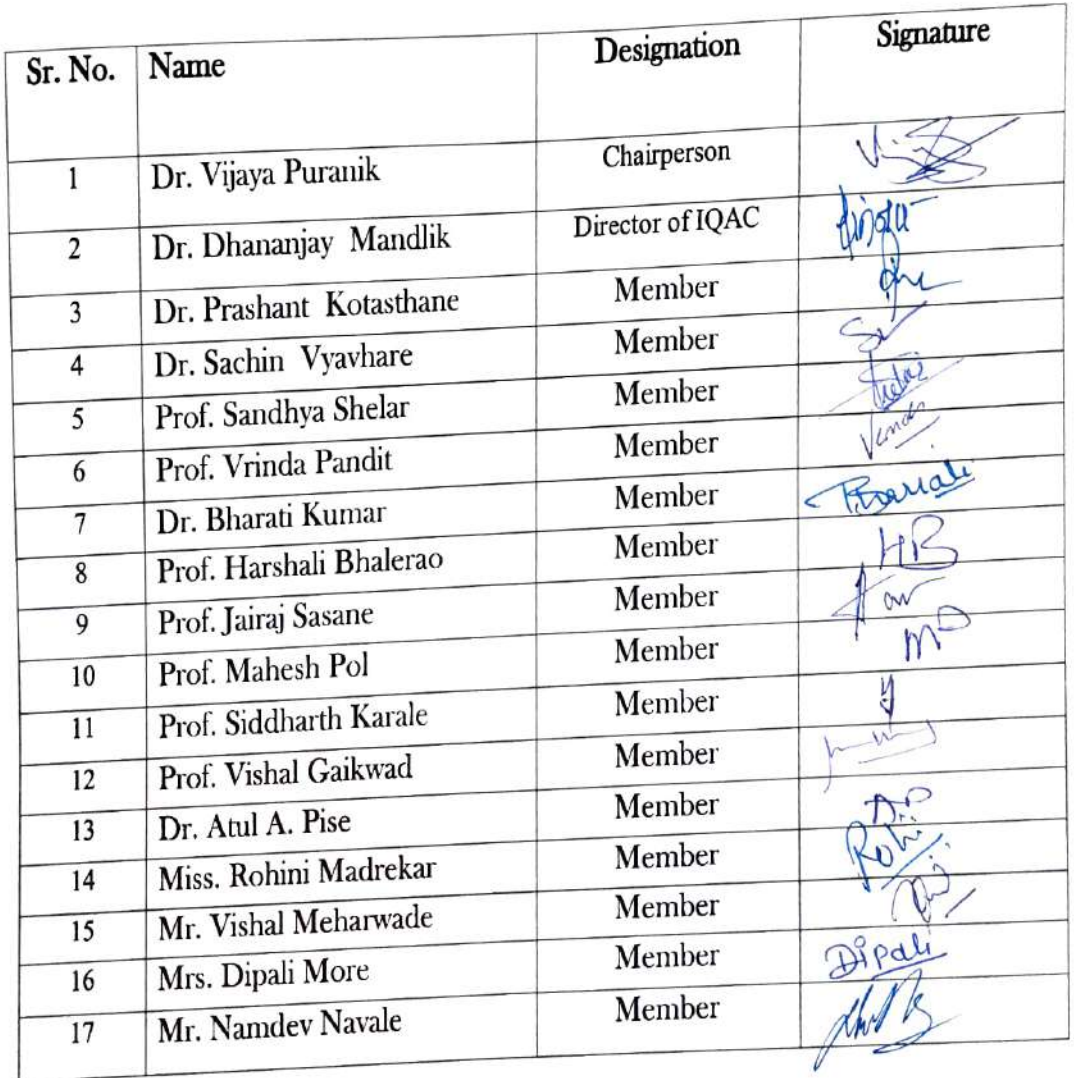 Sr. No. Name Designation Signature
1 Dr. Vijaya Puranik Chairperson
2 Dr. Dhananjay Mandlik Director of IQAC
3 Dr. Prashant Kotasthane Member
4 Dr. Sachin Vyavhare Member
5 Prof. Sandhya Shelar Member
6 Prof. Vrinda Pandit Member
7 Dr. Bharati Kumar Member
8 Prof. Harshali Bhalerao Member HB
9 Prof. Jairaj Sasane Member
10 Prof. Mahesh Pol Member
11 Prof. Siddharth Karale Member
12 Prof. Vishal Gaikwad Member
13 Dr. Atul A. Pise Member
14 Miss. Rohini Madrekar Member Rohi
15 Mr. Vishal Meharwade Member
16 Mrs. Dipali More Member Dipali
17 Mr. Namdev Navale Member